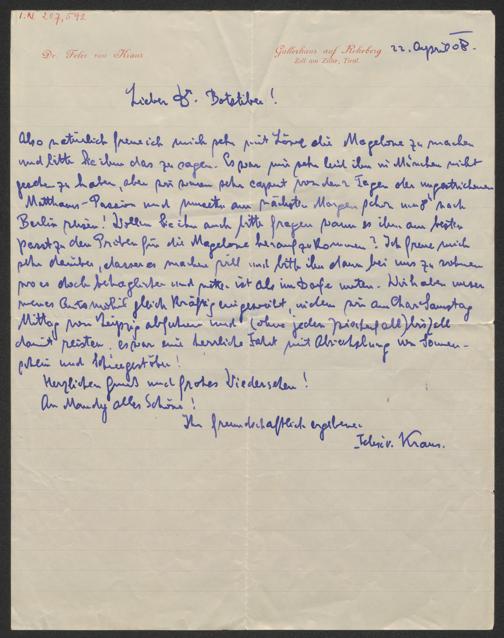 I.N. 207,592
Dr. Felix von Kraus
Gallerhaus auf Rohrberg 22. April 08.
Zell am Ziller, Tirol.
Lieber Dr. Botstiber!
Also natürlich freue ich mich sehr mit Löwe die Magelone zu machen
und bitte Sie ihm das zu sagen. Es war mir sehr leid ihn in München nicht
zu haben, aber wir waren sehr caput von den 2 Tagen der ungestrichenen
Matthäus-Passion und mussten am nächsten Morgen schon nach
Berlin reisen! Wollen Sie ihn auch bitte fragen wann es ihm am besten
passt zu den Proben für die Magelone heraufzukommen? Ich freue mich
sehr darüber, dass er es machen will und bitte ihn dann bei uns zu wohnen
wo es doch behaglicher und netter ist als im Dorfe unten. Wir haben unser
neues Automobil gleich kräftig eingeweiht, indem wir am Charsamstag
Mittag von Leipzig abfuhren und (ohne jeden Zwischenfall) bis Zell
damit reisten. es war eine herrliche Fahrt mit Abwechslung von Sonnen-
schein und Schneegestöber!
Herzlichen Gruß und frohes Wiedersehen!
An Mandy alles Schöne!
Ihr freundschaftlich ergebener
Felix v. Kraus.